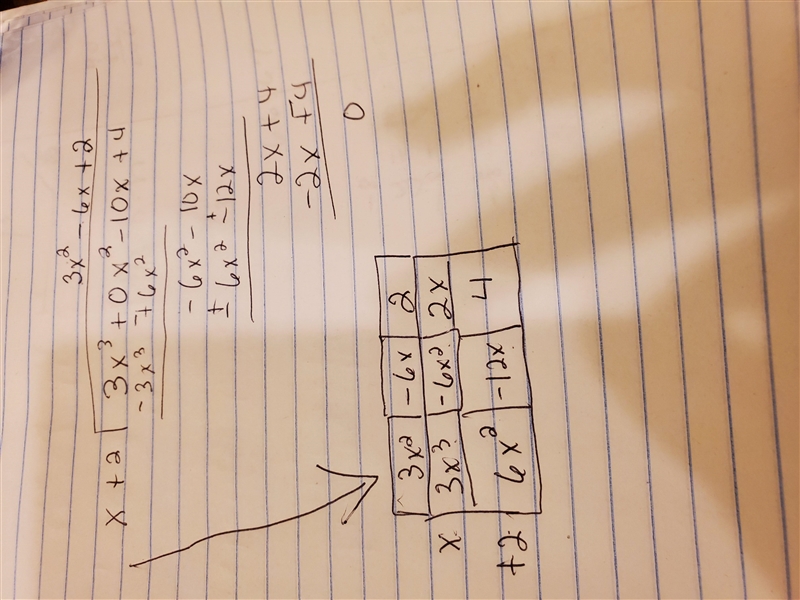 3x² - 6x + 2
x + 2 3x³ + 0x² - 10x + 4
-3x³ ∓6x²
-6x² - 10x
±6x² ±12x
2x + 4
-2x ∓4
0
3x² -6x 2
x 3x³ -6x² 2x
+2 6x² -12x 4